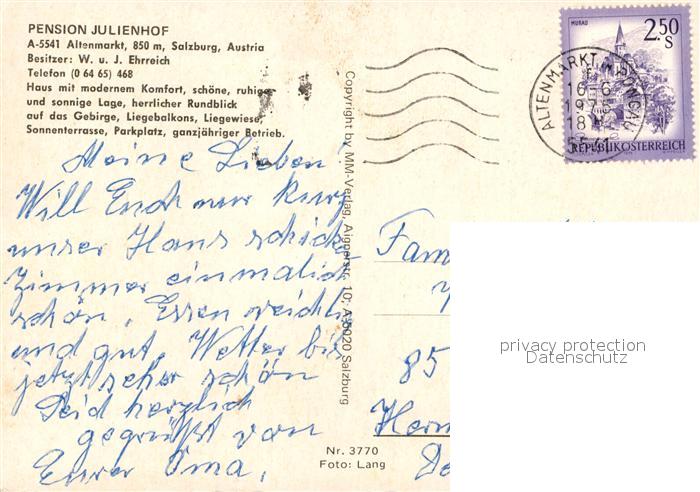 PENSION JULIENHOF
A-5541 Altenmarkt, 850 m, Salzburg, Austria
Besitzer: W. u. J. Ehrreich
Telefon (0 64 65) 468
Haus mit modernem Komfort, schöne, ruhige
und sonnige Lage, herrlicher Rundblick
auf das Gebirge, Liegebalkons, Liegewiese,
Sonnenterrasse, Parkplatz, ganzjähriger Betrieb.
Meine Lieben
Will Euch nur kurz
unser Haus schick
Zimmer einmalich
schön, Essen reichl
und gut, Wetter bis
jetzt sehr schön
Seid herzlich
gegrüßt von
Eurer Oma,
Copyright by MM-Verlag, Aignerstr. 10, A-5020 Salzburg
Nr. 3770
Foto: Lang
MURAU
2,50
S
REPUBLIK ÖSTERREICH
ALTENMARKT IM PONGAU
18
Fam
85
Herm
privacy protection
Datenschutz